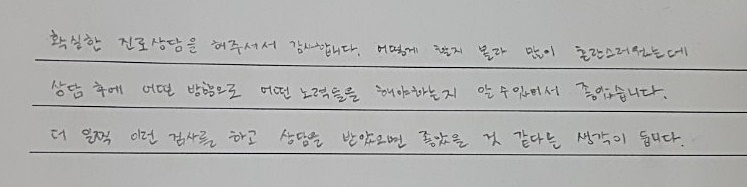 확실한 진로상담을 해주셔서 감사합니다. 어떻게 할지 몰라 많이 혼란스러웠는데
상담 후에 어떤 방향으로 어떤 노력들을 해야하는지 알 수 있어서 좋았습니다.
더 일찍 이런 검사를 하고 상담을 받았으면 좋았을 것 같다는 생각이 듭니다.